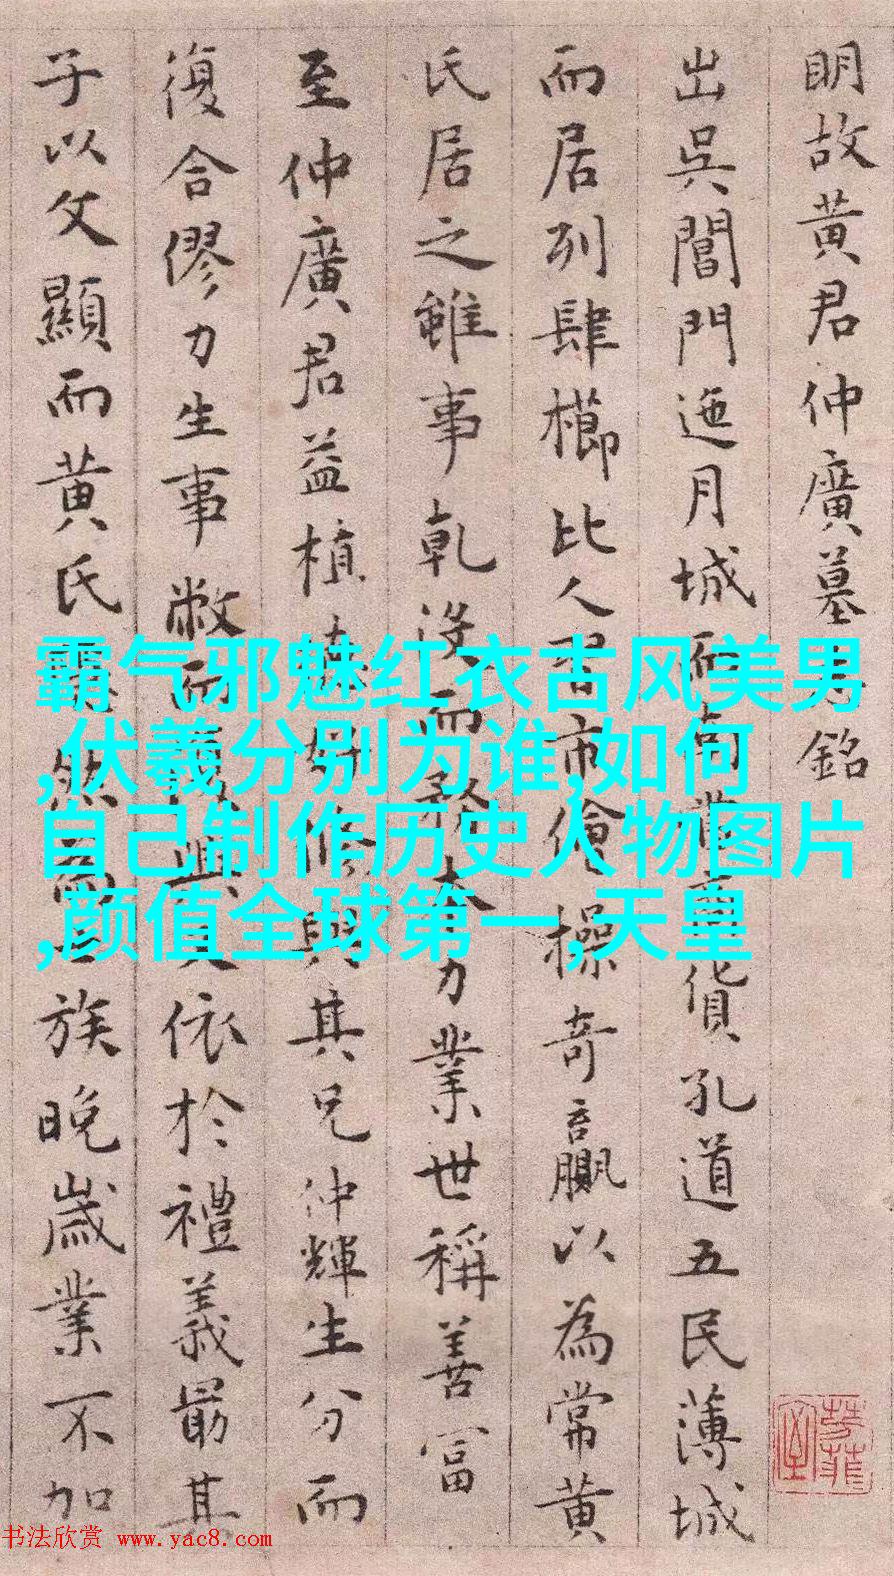 明故黄君仲廣墓銘
出吳閶門迤月城而南
貨孔道五民薄城
而居列肆櫛比人習市儈操奇贏以為常黄
氏居之雖事乾没而
力業世稱善富
至仲廣君益植
其兄仲輝生分而
復合僇力生事敝而
依於禮義最其
子以文顯而黄氏
族晚歲業不加
霸气邪魅红衣古风美男
,伏羲分别为谁,如何
自己制作历史人物图片
,颜值全球第一,天皇
书法欣赏 www.yac8.com